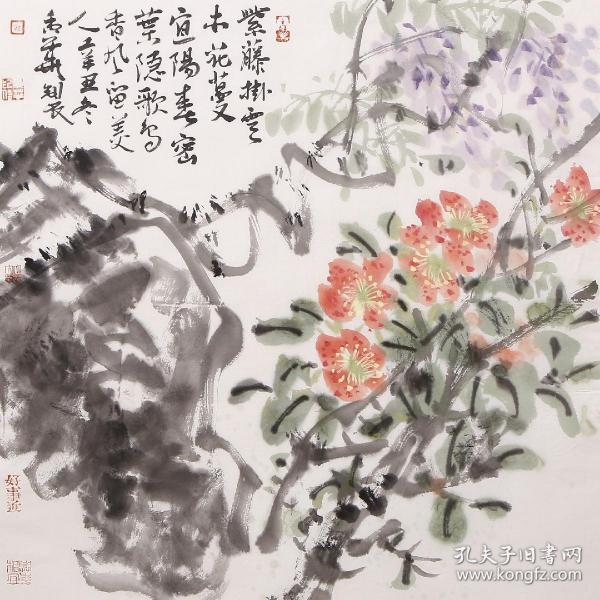 紫藤掛雲
木花蔓
宜陽春密
葉隐歌鸟
香风留美
人 辛丑冬
好事近
孔夫子旧书网
www.kongfz.com